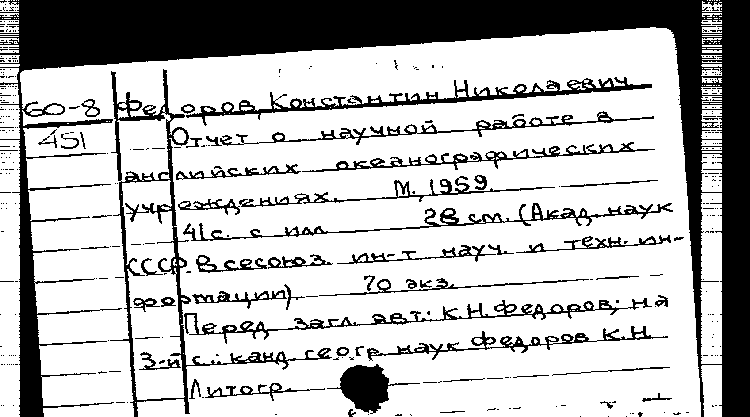 60-8 Федоров, Константин Николаевич
451 Отчет о научной работе в
английских океанографических
учреждениях. М., 1959.
41 с. с илл 28 см. (Акад. наук
СССР. Всесоюз. ин-т науч. и техн. ин-
формации). 70 экз.
Перед загл. авт.: К.Н. Федоров; на
3-й с.: канд. геогр. наук Федоров К.Н.
Литогр.